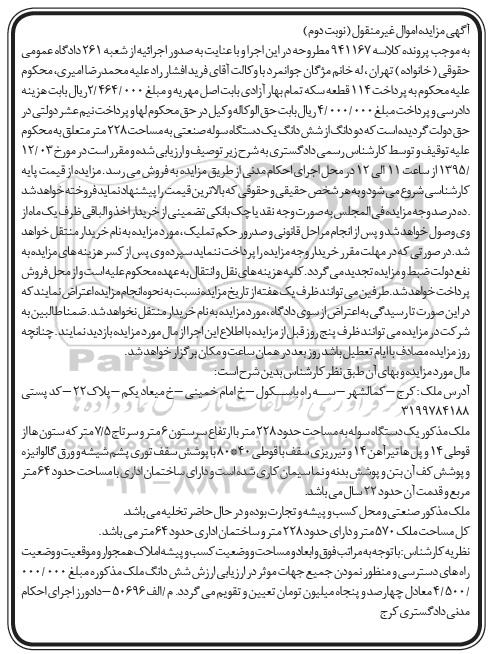 آگهی مزایده اموال غیرمنقول (نوبت دوم)
به موجب پرونده کلاسه ۹۴۱۱۶۷ مطروحه در این اجرا و با عنایت به صدور اجرائیه از شعبه ۲۶۱ دادگاه عمومی
حقوقی (خانواده) تهران، له خانم مژگان جوانمرد با وکالت آقای فرید افشار راد علیه محمدرضا امیری، محکوم
علیه محکوم به پرداخت ۱۱۴ قطعه سکه تمام بهار آزادی بابت اصل مهریه و مبلغ ۲/۴۶۴/۰۰۰ ریال بابت هزینه
دادرسی و پرداخت مبلغ ۴/۰۰۰/۰۰۰ ریال بابت حق الوکاله وکیل در حق محکوم لها و پرداخت نیم عشر دولتی در
حق دولت گردیده است که دو دانگ از شش دانگ یک دستگاه سوله صنعتی به مساحت ۲۲۸ متر متعلق به محکوم
علیه توقیف و توسط کارشناس رسمی دادگستری به شرح زیر توصیف و ارزیابی شده و مقرر است در مورخ ۱۲/۰۳
/۱۳۹۵ از ساعت ۱۱ الی ۱۲ در محل اجرای احکام مدنی از طریق مزایده به فروش می رسد. مزایده از قیمت پایه
کارشناسی شروع می شود و به هر شخص حقیقی و حقوقی که بالاترین قیمت را پیشنهاد نماید فروخته خواهد شد
.ده درصد وجه مزایده فی المجلس به صورت وجه نقد یا چک بانکی تضمینی از خریدار اخذ و الباقی ظرف یک ماه از
وی وصول خواهد شد و پس از انجام مراحل قانونی و صدور حکم تملیک، مورد مزایده به نام خریدار منتقل خواهد
شد. در صورتی که در مهلت مقرر خریدار وجه مزایده را پرداخت ننماید سپرده وی پس از کسر هزینه های مزایده به
نفع دولت ضبط و مزایده تجدید می گردد. کلیه هزینه های نقل و انتقال به عهده محکوم علیه است و از محل فروش
پرداخت خواهد شد. طرفین می توانند ظرف یک هفته از تاریخ مزایده نسبت به نحوه انجام مزایده اعتراض نمایند که
در این صورت تا رسیدگی به اعتراض از سوی دادگاه، مورد مزایده به نام خریدار منتقل نخواهد شد. ضمنا طالبین به
شرکت در مزایده می توانند ظرف پنج روز قبل از مزایده با اطلاع این اجرا از مال مورد مزایده بازدید نمایند. چنانچه
روز مزایده مصادف با ایام تعطیل باشد روز بعد در همان ساعت و مکان برگزار خواهد شد.
مال مورد مزایده و بهای آن طبق نظر کارشناس بدین شرح است:
آدرس ملک: کرج – کمالشهر – سه راه باسکول – خ امام خمینی – خ میعاد یکم – پلاک ۲۲ – کد پستی
۳۱۹۹۷۸۴۱۸۸
ملک مذکور یک دستگاه سوله به مساحت حدود ۲۲۸ متر با ارتفاع سرستون ۶ متر و سر تاج ۷/۵ متر که ستون ها از
قوطی ۱۴ و پل ها تیر آهن ۱۴ و تیرریزی سقف با قوطی ۴۰*۸۰ با پوشش سقف توری پشم شیشه و ورق گالوانیزه
و پوشش کف آن بتن و پوشش بدنه و نما سیمان کاری شده است و دارای ساختمان اداری با مساحت حدود ۶۴ متر
مربع و قدمت آن حدود ۲۲ سال می باشد.
ملک مذکور صنعتی و محل کسب و پیشه و تجارت بوده و در حال حاضر تخلیه می باشد.
کل مساحت ملک ۵۷۰ متر و دارای حدود ۲۲۸ متر و ساختمان اداری حدود ۶۴ متر می باشد.
نظریه کارشناس: با توجه به مراتب فوق و ابعاد و مساحت و وضعیت کسب و پیشه املاک همجوار و موقعیت و وضعیت
راه های دسترسی و منظور نمودن جمیع جهات موثر در ارزیابی ارزش شش دانگ ملک مذکوره مبلغ ۰۰۰/۰۰۰
/۴/۵۰۰ معادل چهارصد و پنجاه میلیون تومان تعیین و تقویم می گردد. م/الف ۵۰۶۹۶ – دادورز اجرای احکام
مدنی دادگستری کرج